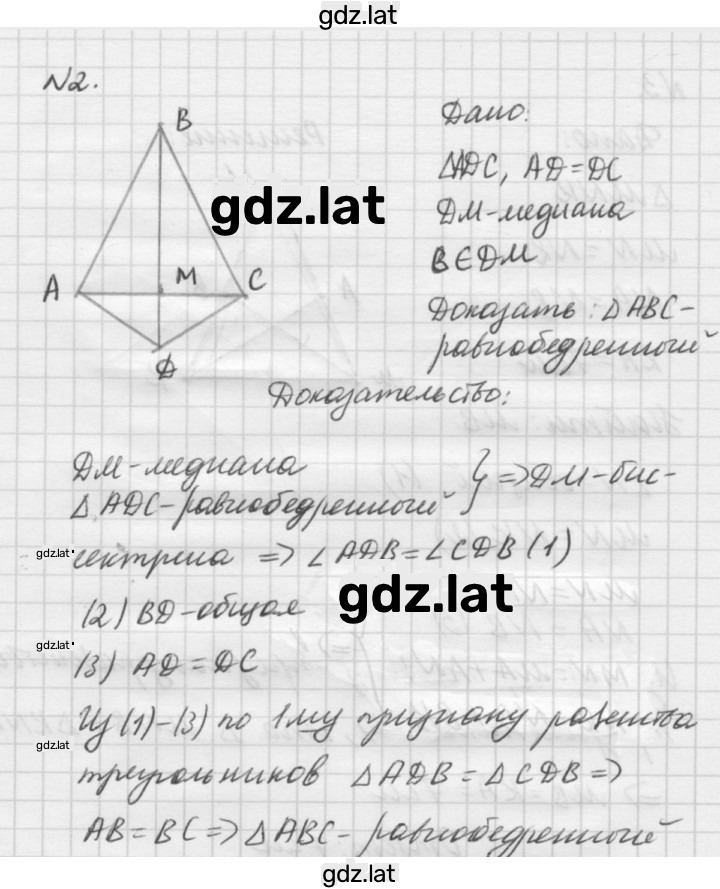 gdz.lat
N2.
B
Дано:
△ADC, AD=DC
gdz.lat
DM-медиана
B∈DM
A M C
Доказать: △ABC-
равнобедренный
D
Доказательство:
DM-медиана
△ADC-равнобедренный } => DM-бис-
gdz.lat
сектриса => ∠ADB=∠CDB (1)
gdz.lat
(2) BD-общая
gdz.lat
(3) AD=DC
Из (1)-(3) по 1му признаку равенства
gdz.lat
треугольников △ADB=△CDB =>
AB=BC => △ABC- равнобедренный
gdz.lat